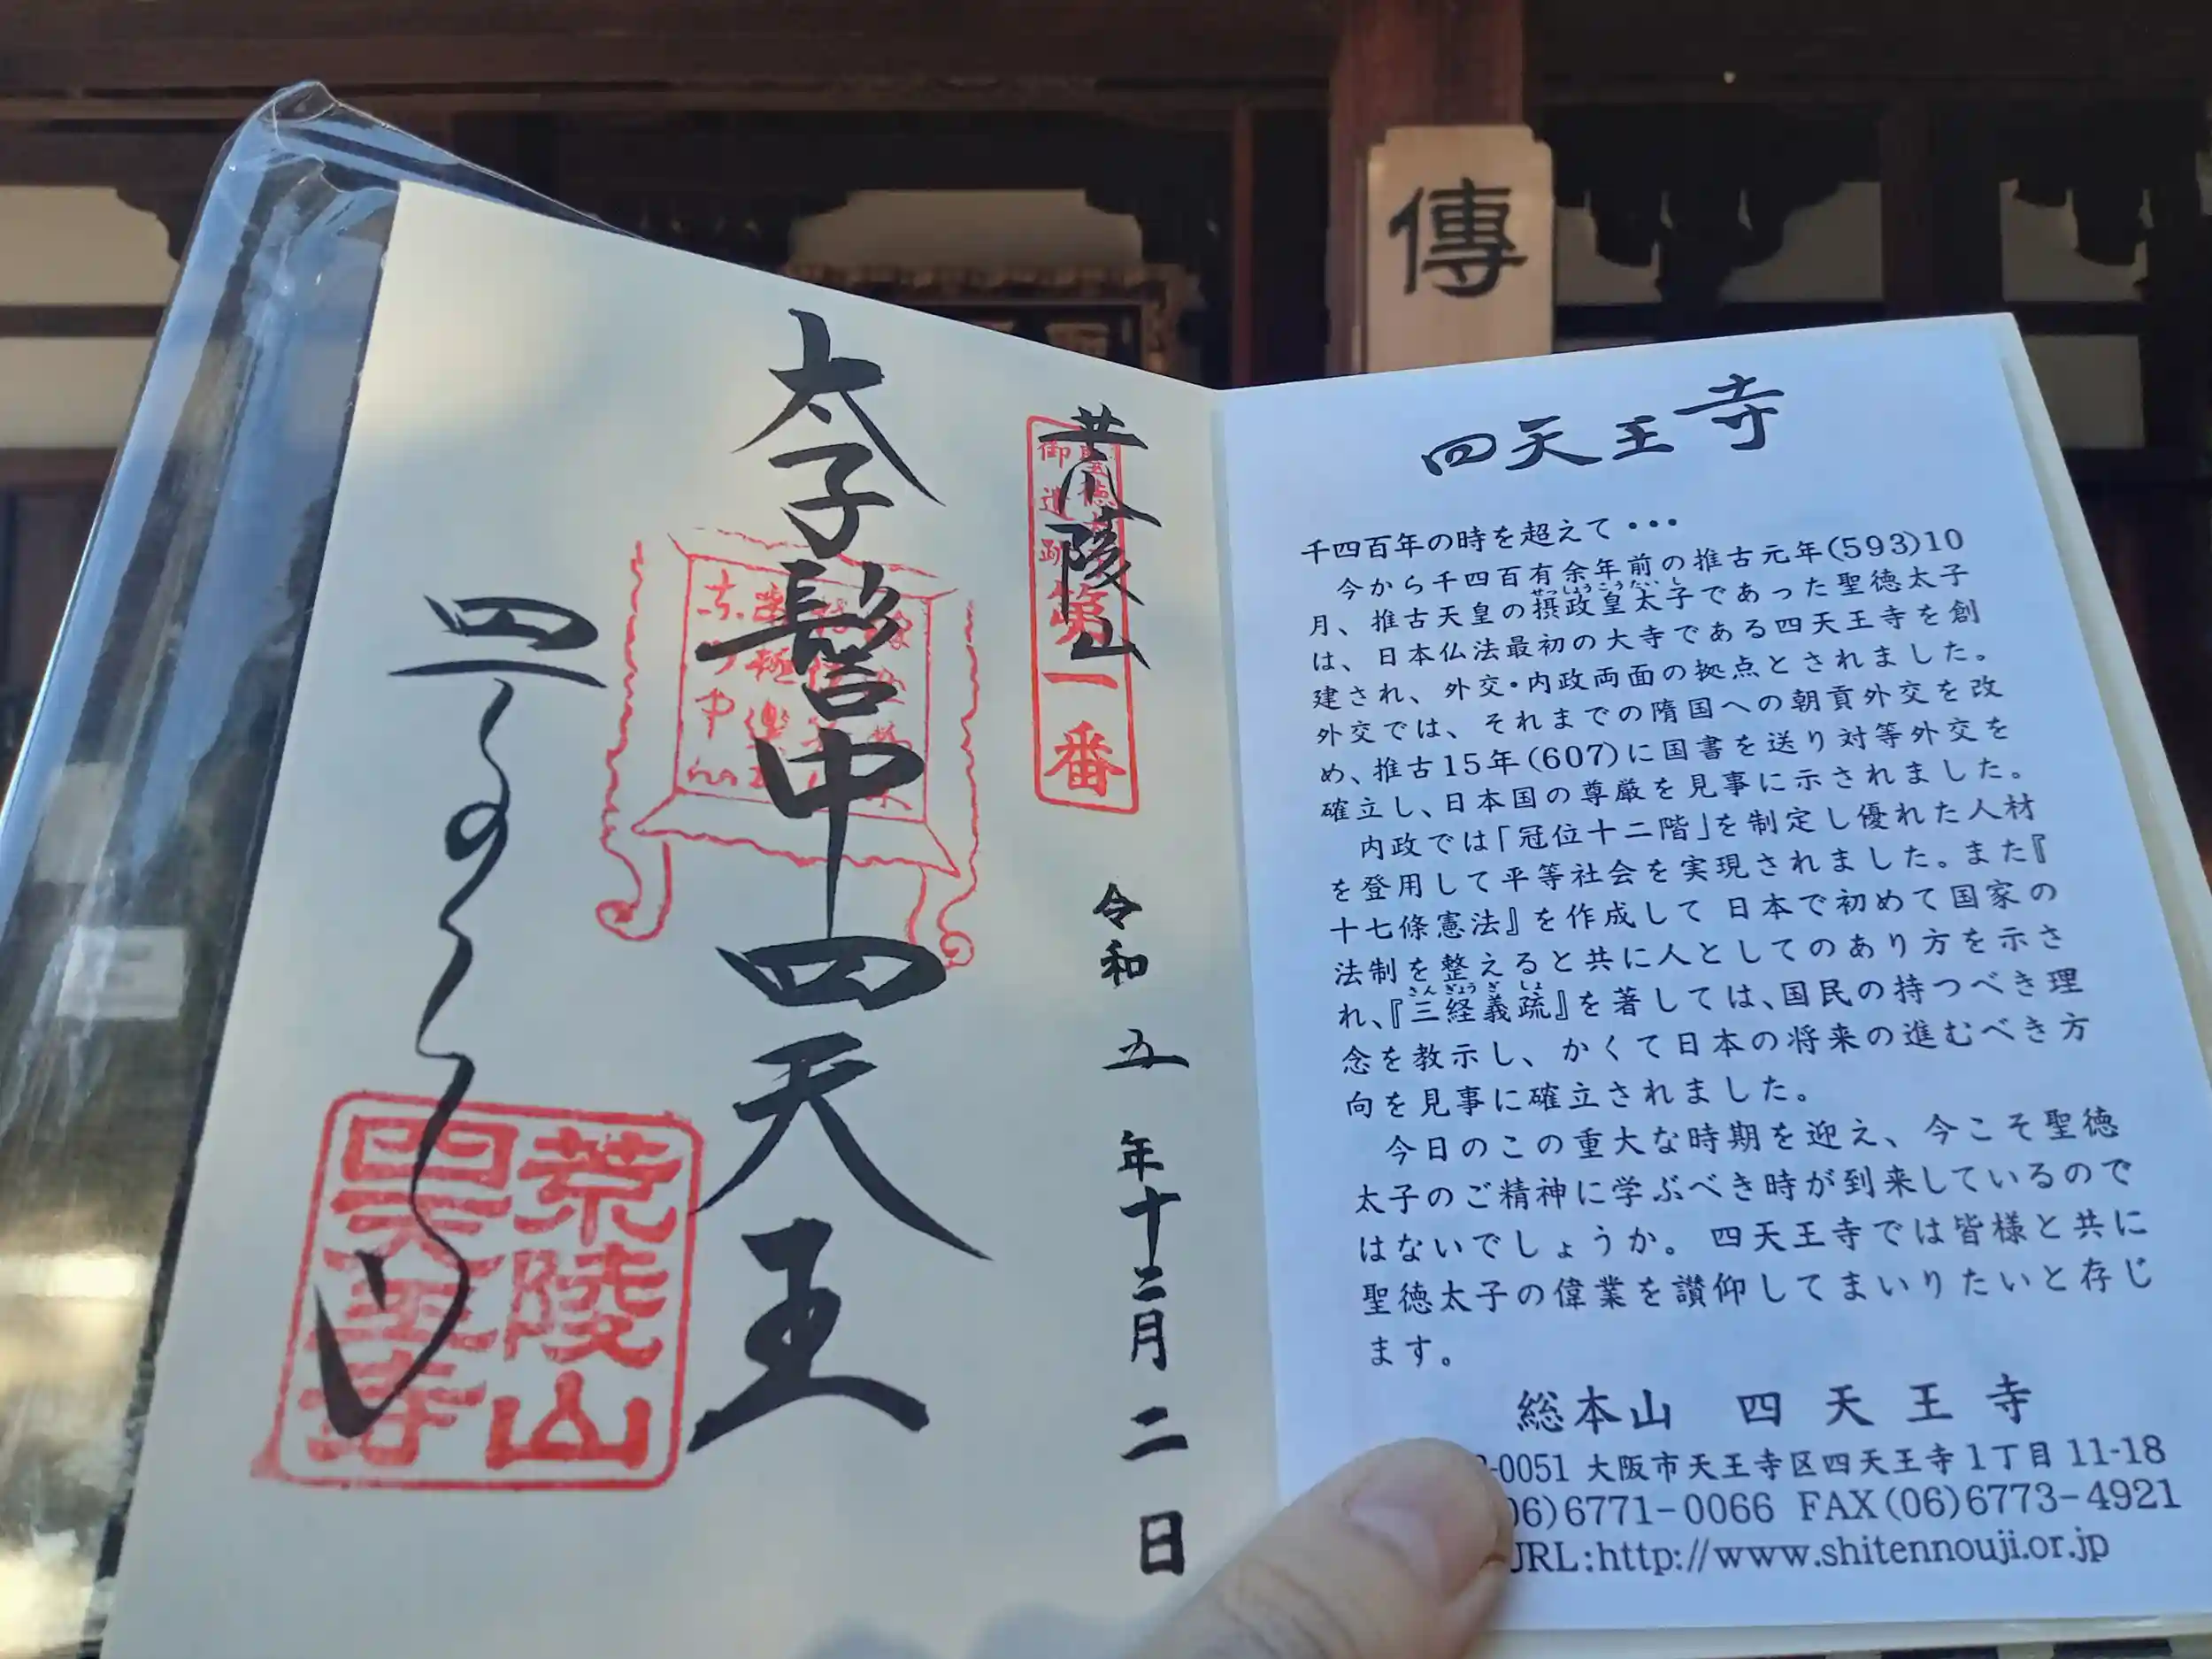 傳
荒陵山
聖徳
御遺跡
第一番
令和五年十二月二日
太子髻中四天王
四
荒陵山
四天王寺
四天王寺
千四百年の時を超えて・・・
今から千四百有余年前の推古元年(593)10
月、推古天皇の摂政皇太子であった聖徳太子
せっしょうこうたいし
は、日本仏法最初の大寺である四天王寺を創
建され、外交・内政両面の拠点とされました。
外交では、それまでの隋国への朝貢外交を改
め、推古15年(607)に国書を送り対等外交を
確立し、日本国の尊厳を見事に示されました。
内政では「冠位十二階」を制定し優れた人材
を登用して平等社会を実現されました。また『
十七條憲法』を作成して 日本で初めて国家の
法制を整えると共に人としてのあり方を示さ
れ、『三経義疏』を著しては、国民の持つべき理
さんぎょうぎしょ
念を教示し、かくて日本の将来の進むべき方
向を見事に確立されました。
今日のこの重大な時期を迎え、今こそ聖徳
太子のご精神に学ぶべき時が到来しているので
はないでしょうか。四天王寺では皆様と共に
聖徳太子の偉業を讃仰してまいりたいと存じ
ます。
総本山 四天王寺
-0051 大阪市天王寺区四天王寺1丁目11-18
06)6771-0066 FAX(06)6773-4921
URL:http://www.shitennouji.or.jp